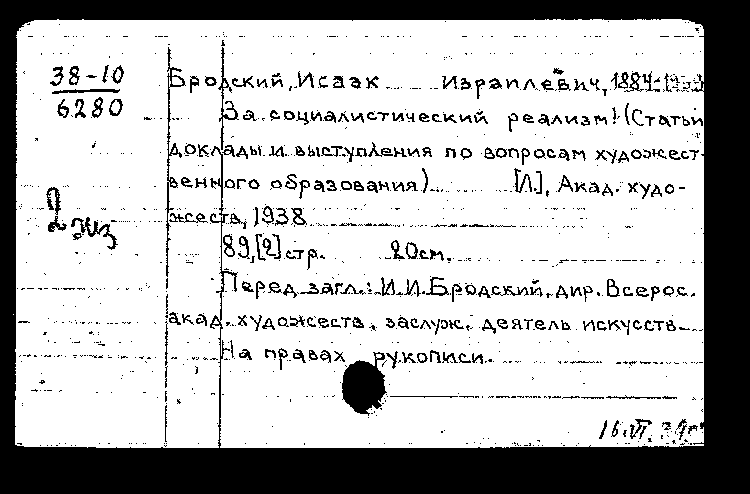 38-10
6280
2 экз
Бродский, Исаак Израилевич, 1884-
За социалистический реализм! (Статьи
доклады и выступления по вопросам художест-
венного образования) [Л.], Акад. худо-
жеств, 1938
89,[2] стр. 20см.
Перед загл.: И.И. Бродский, дир. Всерос.
акад. художеств, заслуж. деятель искусств
На правах рукописи.
16.VI.